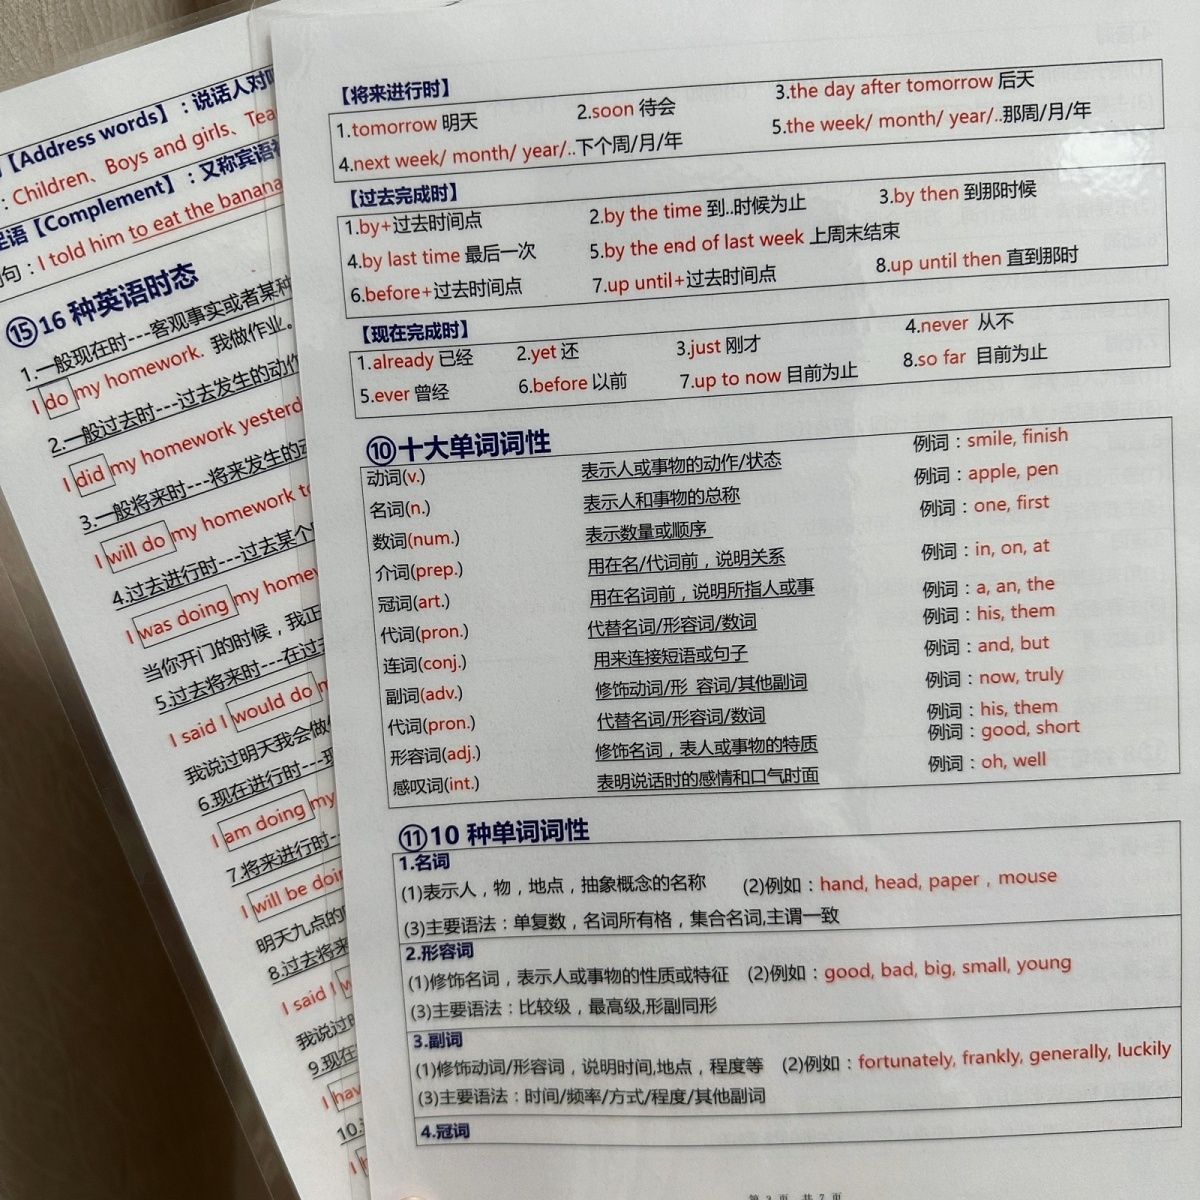 【Address words】：说话人对
：Children、Boys and girls、Tea
足语【Complement】：又称宾语补
句：I told him to eat the banana
⑮16 种英语时态
1.一般现在时---客观事实或者某种
I do my homework. 我做作业。
2.一般过去时---过去发生的动作
I did my homework yesterd
3.一般将来时---将来发生的动
I will do my homework to
4.过去进行时---过去某个
I was doing my homew
当你开门的时候，我正
5.过去将来时---在过去
I said I would do m
我说过明天我会做
6.现在进行时---现
I am doing my
7.将来进行时--
I will be doin
明天九点的
8.过去将来
I said I w
我说过
9.现在
I hav
10.
I h
【将来进行时】
1.tomorrow 明天 2.soon 待会 3.the day after tomorrow 后天
4.next week/ month/ year/..下个周/月/年 5.the week/ month/ year/..那周/月/年
【过去完成时】
1.by+过去时间点 2.by the time 到..时候为止 3.by then 到那时候
4.by last time 最后一次 5.by the end of last week 上周末结束
6.before+过去时间点 7.up until+过去时间点 8.up until then 直到那时
【现在完成时】
1.already 已经 2.yet 还 3.just 刚才 4.never 从不
5.ever 曾经 6.before 以前 7.up to now 目前为止 8.so far 目前为止
⑩十大单词词性
动词(v.) 表示人或事物的动作/状态 例词：smile, finish
名词(n.) 表示人和事物的总称 例词：apple, pen
数词(num.) 表示数量或顺序 例词：one, first
介词(prep.) 用在名/代词前，说明关系 例词：in, on, at
冠词(art.) 用在名词前，说明所指人或事 例词：a, an, the
代词(pron.) 代替名词/形容词/数词 例词：his, them
连词(conj.) 用来连接短语或句子 例词：and, but
副词(adv.) 修饰动词/形 容词/其他副词 例词：now, truly
代词(pron.) 代替名词/形容词/数词 例词：his, them
形容词(adj.) 修饰名词，表人或事物的特质 例词：good, short
感叹词(int.) 表明说话时的感情和口气时面 例词：oh, well
⑪10 种单词词性
1.名词
(1)表示人，物，地点，抽象概念的名称 (2)例如：hand, head, paper，mouse
(3)主要语法：单复数，名词所有格，集合名词,主谓一致
2.形容词
(1)修饰名词，表示人或事物的性质或特征 (2)例如：good, bad, big, small, young
(3)主要语法：比较级，最高级,形副同形
3.副词
(1)修饰动词/形容词，说明时间,地点，程度等 (2)例如：fortunately, frankly, generally, luckily
(3)主要语法：时间/频率/方式/程度/其他副词
4.冠词
第 3 页 共 7 页